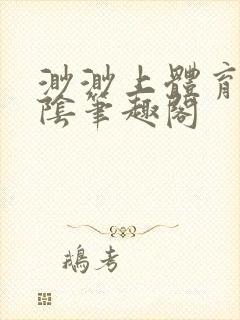 渺渺上體育
陰筆趣閣
鵝考